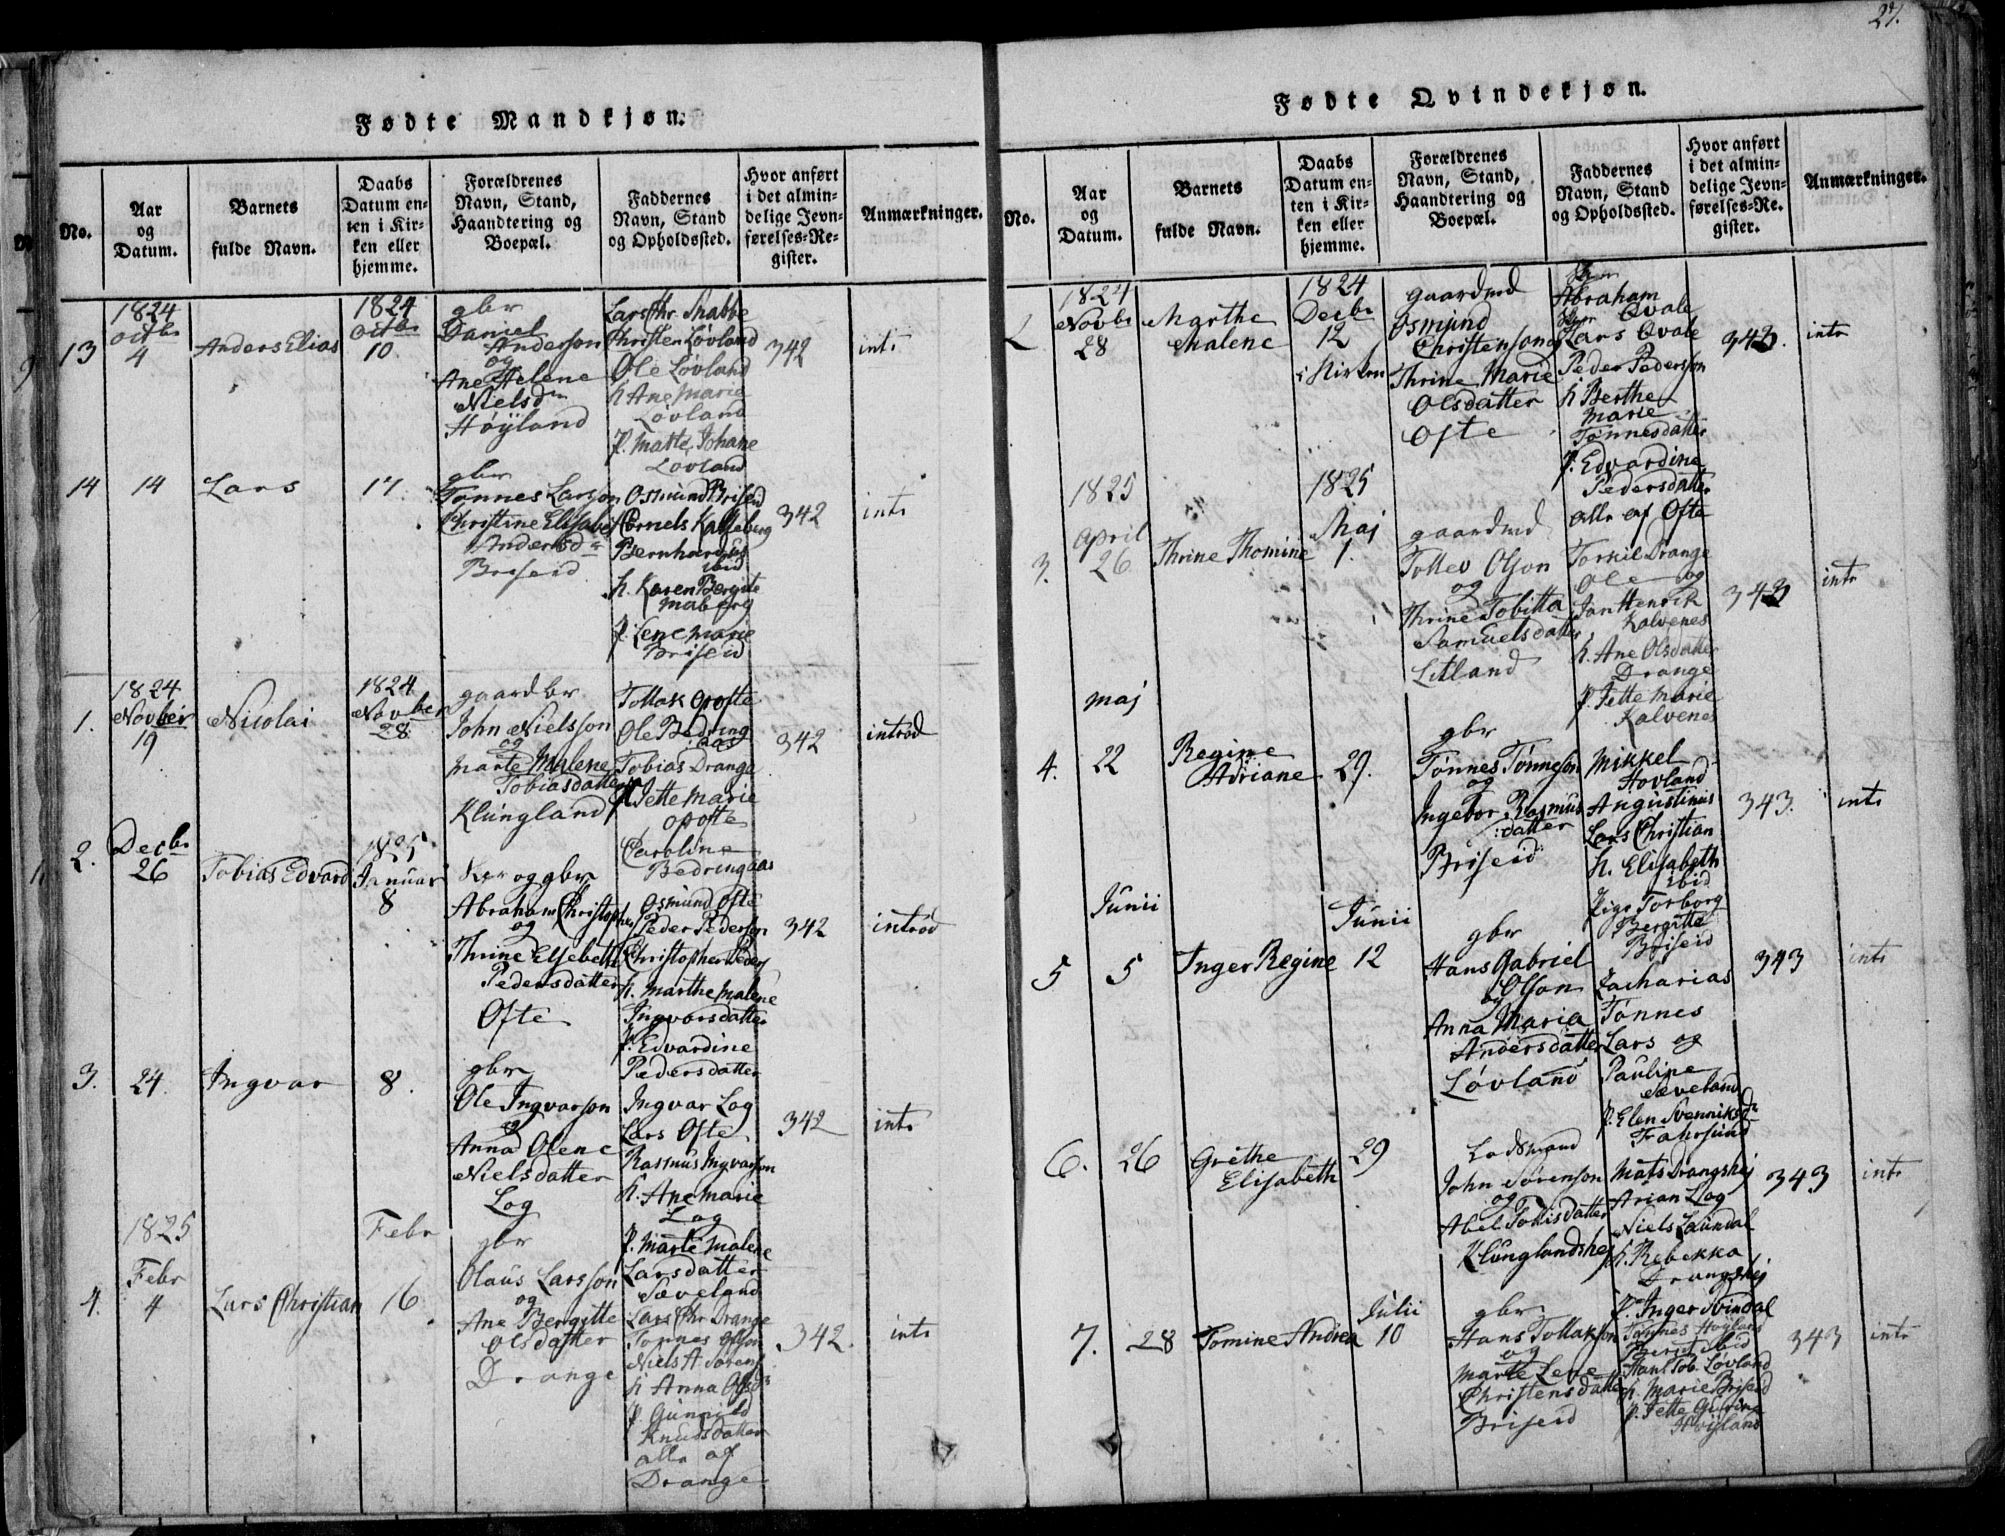 27.
Fødte Mandkjøn.
No.
Aar
og
Datum.
Barnets
fulde Navn.
Daabs
Datum en-
ten i Kir-
ken eller
hjemme.
Forældrenes
Navn, Stand,
Haandtering og
Boepæl.
Faddernes
Navn, Stand
og Opholdssted.
Hvor anført
i det almin-
delige Jevn-
førelses-Re-
gister.
Anmærkninger.
13
1824
Octbr
4
Anders Elias
1824
Octbr
10
gbr
Daniel
Anderson
og
Ane Helene
Nielsdr
Høÿland
Lars Chr. Stabbe
Christen Løvland
Ole Løvland
K Ane Marie
Løvland
P. Matte Johane
Løvland
342
intr
14
14
Lars
17
gbr
Tønnes Larson
Christine Elisabet
Andersdr
Briseid
Osmund Briseid
Cornels Kalleberg
Bernhardus
ibid
K. Karen Bergite
Maberg
P. Lene Marie
Briseid
342
intr
1.
1824
Novber
19
Nicolai
1824
Novber
28
gaardbr
John Nielsson
og
Marte Malene
Tobiasdatter
Klungland
Tollak Opofte
Ole Bedring
aas
Tobias Drange
P. Jette Marie
Opofte
Caroline
Bedringaas
342
introd
2.
Decbr
26
Tobias Edvard
1825
Januar
8
og gbr
Abraham Christopher
og
Thrine Elsebeth
Pedersdatter
Ofte
Osmund Ofte
Peder Pederson
Christopher Peders
K. Marthe Malene
Ingvorsdatter
P. Edvardine
Pedersdatter
342
introd
3.
24
Ingvar
8.
gbr
Ole Ingvarson
og
Anna Olene
Nielsdatter
Log
Ingvar Log
Lars Ofte
Rasmus Ingvarson
K. Ane Marie
Log
P. Marte Malene
Larsdatter
Sæveland
342
intr
4.
1825
Febr
4
Lars Christian
Febr
16
gbr
Olaus Larsson
og
Ane Bergitte
Olsdatter
Drange
Lars Chr Drange
Tonnes Olson
Niels A Sørens
K Anna
P. Gunnild
Knudsdatter
alle af
Drange
342.
intr
Fødte Qvindekjøn.
No.
Aar
og
Datum.
Barnets
fulde Navn.
Daabs
Datum en-
ten i Kir-
ken eller
hjemme.
Forældrenes
Navn, Stand,
Haandtering og
Boepæl.
Faddernes
Navn, Stand
og Opholdssted.
Hvor anført
i det almin-
delige Jevn-
førelses-Re-
gister.
Anmærkninger.
2
1824
Novbr
28
Marthe
Malene
1824
Decbr
12
i Kirken
gaardmd
Osmund
Christenson og
Thrine Marie
Olsdatter
Ofte
Abraham
Qvale
Lars Qvale
Peder Pederson
K Berthe
Marie
Tønnesdatter
P. Edvardine
Pedersdatter
alle af Ofte
343
intr
3.
1825
April
26
Thrine Thomine
1825
Maj
1.
gaardmd
Tollev Olson
og
Thrine Tobitta
Samuelsdatter
Litland
Torkil Drange
Ole og
Jan Henrik
Kalvenes
K. Ane Olsdatter
Drange
P. Jette Marie
Kalvenes
343
intr
4.
Maj
22
Regine
Adriane
29.
gbr
Tønnes Tønneson
og
Ingebor Rasmus
datter
Briseid
Mikkel
Hovland
Angustinus
Lars Christian
K. Elisabeth
ibid
Pige Torborg
Bergitte
Briseid
343.
intr
5
Junii
5
Inger Regine
Junii
12
gbr
Hans Gabriel
Olson
og
Anna Maria
Andersdatter
Løvland
Zacharias
Tønnes
Lars og
Pauline
Sæveland
P. Elen Svenniksdr
Fahrsund
343
intr
6.
26
Grethe
Elisabeth
29
Lodsmand
John Sørenson
og
Abel Tollisdatter
Klunglandshej
Mats Drangshej
Arian Log
Niels Laundal
K. Rebekka
Drangshej
P. Inger Svindal
343
intr
7.
28
Tomine Andrea
Julii
10
gbr
Hans Tollakson
og
Marte Lene
Christensdatter
Briseid
Tønnes Høyland
Berent ibid
Hans Tob. Løvland
K. Marie Briseid
P. Jette
Høyland
343
intr